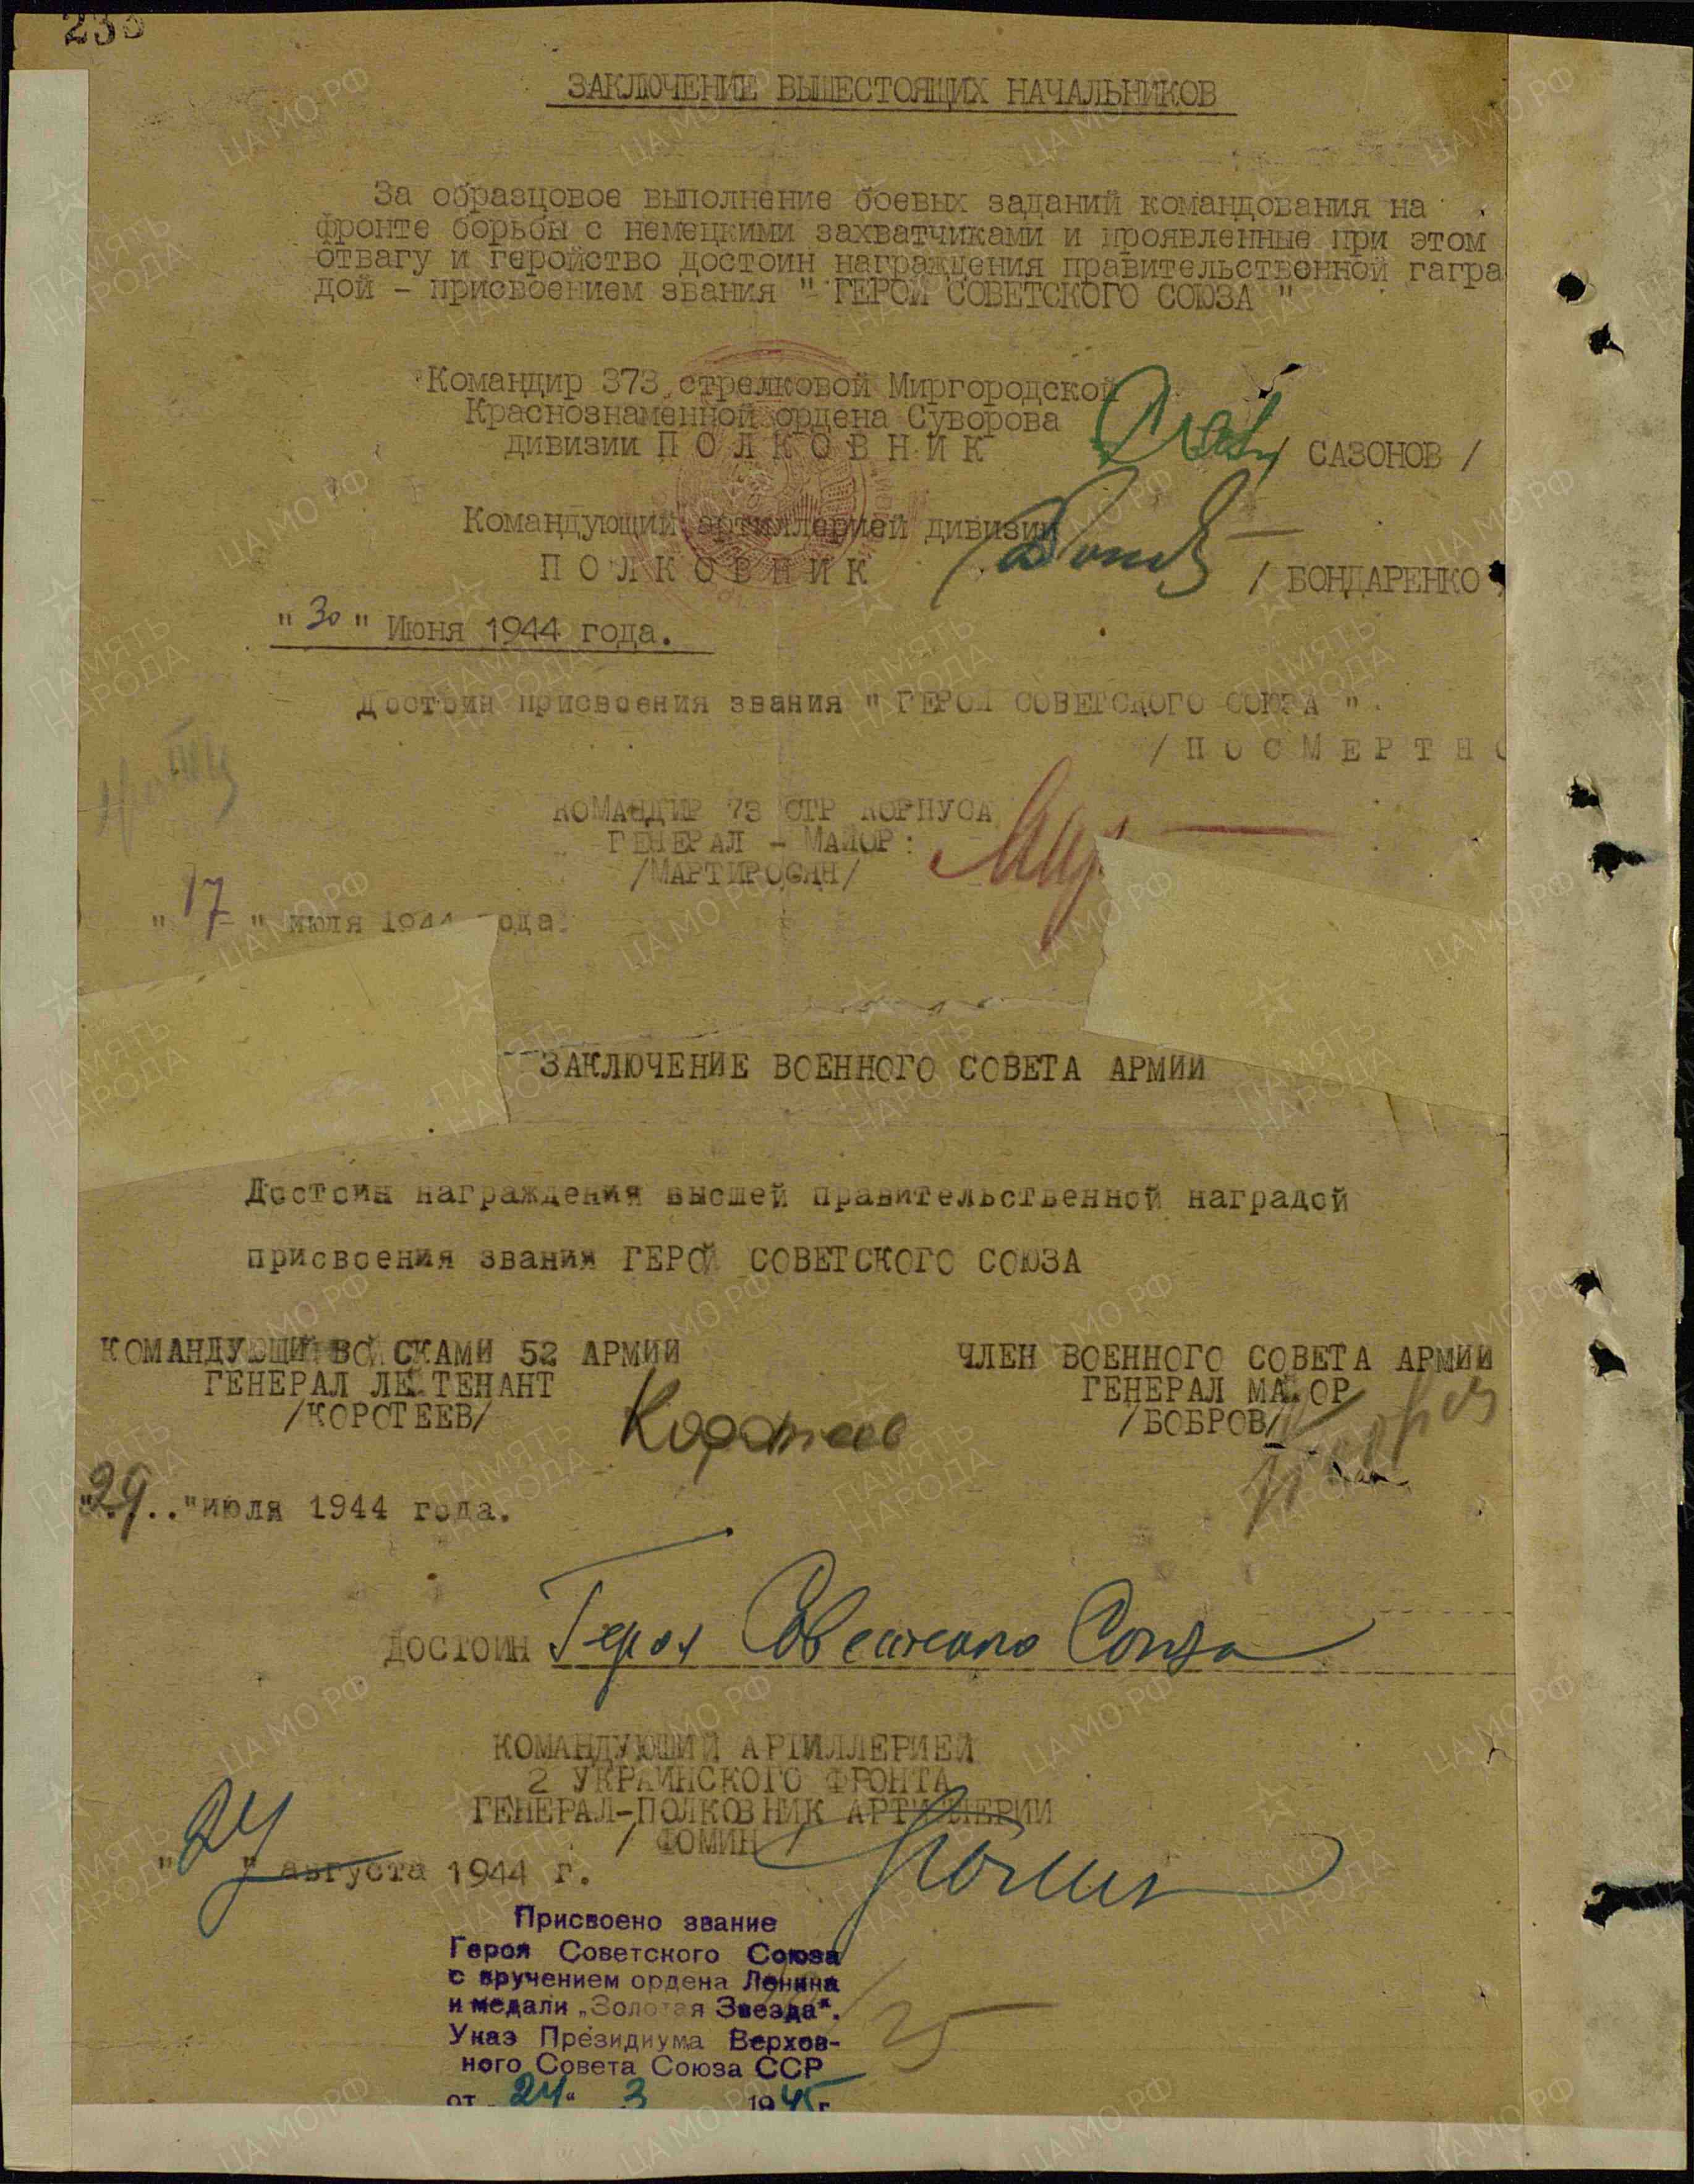 233
ЗАКЛЮЧЕНИЕ ВЫШЕСТОЯЩИХ НАЧАЛЬНИКОВ
За образцовое выполнение боевых заданий командования на
фронте борьбы с немецкими захватчиками и проявленные при этом
отвагу и геройство достоин награждения правительственной гагра
дой - присвоением звания " ГЕРОЙ СОВЕТСКОГО СОЮЗА "
Командир 373 стрелковой Миргородской
Краснознаменной ордена Суворова
дивизии ПОЛКОВНИК / САЗОНОВ /
Командующий артиллерией дивизии
ПОЛКОВНИК / БОНДАРЕНКО
"30" Июня 1944 года.
Достоин присвоения звания " ГЕРОЙ СОВЕТСКОГО СОЮЗА ".
/ПОСМЕРТНО
КОМАНДИР 73 СТР КОРПУСА
ГЕНЕРАЛ - МАЙОР:
/МАРТИРОСЯН/
"17" июля 1944 года.
ЗАКЛЮЧЕНИЕ ВОЕННОГО СОВЕТА АРМИИ
Достоин награждения высшей правительственной наградой
присвоения звания ГЕРОЙ СОВЕТСКОГО СОЮЗА
КОМАНДУЮЩИЙ ВОЙСКАМИ 52 АРМИИ
ГЕНЕРАЛ ЛЕЙТЕНАНТ
/КОРОТЕЕВ/ Коротеев
ЧЛЕН ВОЕННОГО СОВЕТА АРМИИ
ГЕНЕРАЛ МАЙОР
/БОБРОВ/
"29.." июля 1944 года.
ДОСТОИН Героя Советского Союза
КОМАНДУЮЩИЙ АРТИЛЛЕРИЕЙ
2 УКРАИНСКОГО ФРОНТА
ГЕНЕРАЛ-ПОЛКОВНИК АРТИЛЛЕРИИ
/ ФОМИН / Фомин
"24" августа 1944 г.
Присвоено звание
Героя Советского Союза
с вручением ордена Ленина
и медали „Золотая Звезда".
Указ Президиума Верхов-
ного Совета Союза ССР
от „24" 3 1945 г.